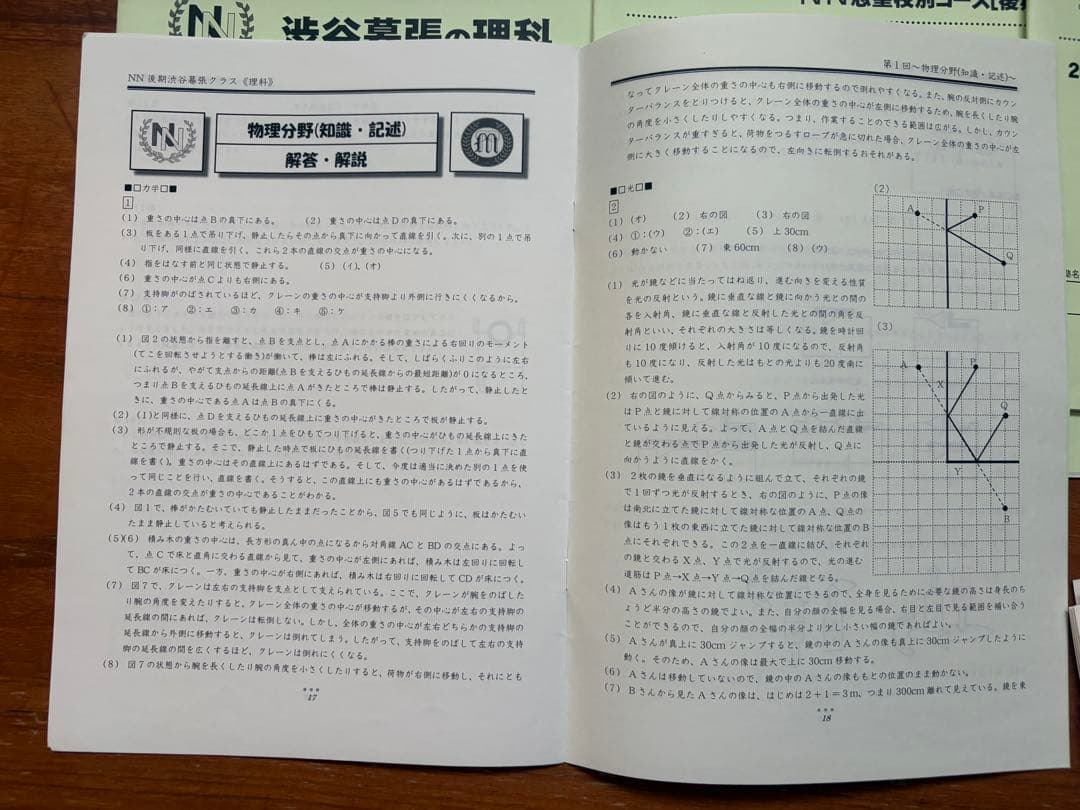 渋谷幕張の理科
NN志望校別コース[後
NN 後期渋谷幕張クラス《理科》
NN
物理分野(知識・記述)
解答・解説
m
■□力学□■
1
(1) 重さの中心は点Bの真下にある。 (2) 重さの中心は点Dの真下にある。
(3) 板をある1点で吊り下げ、静止したらその点から真下に向かって直線を引く。次に、別の1点で吊
り下げ、同様に直線を引く、これら2本の直線の交点が重さの中心になる。
(4) 指をはなす前と同じ状態で静止する。 (5) (イ)、(オ)
(6) 重さの中心が点Cよりも右側にある。
(7) 支持脚がのばされているほど、クレーンの重さの中心が支持脚より外側に行きにくくなるから。
(8) ①：ア ②：エ ③：カ ④：キ ⑤：ケ
(1) 図2の状態から指を離すと、点Bを支点とし、点Aにかかる棒の重さによる右回りのモーメント
(てこを回転させようとする働き)が働いて、棒は左にふれる。そして、しばらくふりこのように左右
にふれるが、やがて支点からの距離(点Bを支えるひもの延長線からの最短距離)が0になるところ、
つまり点Bを支えるひもの延長線上に点Aがきたところで棒は静止する。したがって、静止したと
きに、重さの中心である点Aは点Bの真下にくる。
(2) (1)と同様に、点Dを支えるひもの延長線上に重さの中心がきたところで板が静止する。
(3) 形が不規則な板の場合も、どこか1点をひもでつり下げると、重さの中心がひもの延長線上にきた
ところで静止する。そこで、静止した時点で板にひもの延長線を書く(つり下げた1点から真下に直
線を書く)。重さの中心はその直線上にあるはずである。そして、今度は適当に決めた別の1点を使
って同じことを行い、直線を書く。そうすると、この直線上にも重さの中心があるはずであるから、
2本の直線の交点が重さの中心であることがわかる。
(4) 図1で、棒がかたむいていても静止したままだったことから、図5でも同じように、板はかたむい
たまま静止していると考えられる。
(5)(6) 積み木の重さの中心は、長方形の真ん中の点になるから対角線ACとBDの交点にある。よっ
て、点Cで床と直角に交わる直線から見て、重さの中心が左側にあれば、積み木は左回りに回転し
てBCが床につく。一方、重さの中心が右側にあれば、積み木は右回りに回転してCDが床につく。
(7) 図7で、クレーンは左右の支持脚を支点として支えられている。ここで、クレーンが腕をのばした
り腕の角度を変えたりすると、クレーン全体の重さの中心が移動するが、その中心が左右の支持脚の
延長線の間にあれば、クレーンは転倒しない。しかし、全体の重さの中心が左右どちらかの支持脚の
延長線から外側に移動すると、クレーンは倒れてしまう。したがって、支持脚をのばして左右の支持
脚の延長線の間を広くするほど、クレーンは倒れにくくなる。
(8) 図7の状態から腕を長くしたり腕の角度を小さくしたりすると、荷物が右側に移動し、それにとも
17
第1回～物理分野(知識・記述)～
なってクレーン全体の重さの中心も右側に移動するので倒れやすくなる。また、腕の反対側にカウン
ターバランスをとりつけると、クレーン全体の重さの中心が左側に移動するため、腕を長くしたり腕
の角度を小さくしたりしやすくなる。つまり、作業することのできる範囲は広がる。しかし、カウン
ターバランスが重すぎると、荷物をつるすロープが急に切れた場合、クレーン全体の重さの中心が左
側に大きく移動することになるので、左向きに転倒するおそれがある。
■□光□■
2
(1) (オ) (2) 右の図 (3) 右の図
(4) ①：(ウ) ②：(エ) (5) 上30cm
(6) 動かない (7) 東60cm (8) (ウ)
(1) 光が鏡などに当たってはね返り、進む向きを変える性質
を光の反射という。鏡に垂直な線と鏡に向かう光との間の
角を入射角、鏡に垂直な線と反射した光との間の角を反
射角といい、それぞれの大きさは等しくなる。鏡を時計回
りに10度傾けると、入射角が10度になるので、反射角
も10度になり、反射した光はもとの光よりも20度南に
傾いて進む。
(2) 右の図のように、Q点からみると、P点から出発した光
はP点と鏡に対して線対称の位置のA点から一直線に出
ているように見える。よって、A点とQ点を結んだ直線
と鏡が交わる点でP点から出発した光が反射し、Q点に
向かうように直線をかく。
(3) 2枚の鏡を垂直になるように組んで立て、それぞれの鏡
で1回ずつ光が反射するとき、右の図のように、P点の像
は南北に立てた鏡に対して線対称な位置のA点、Q点の
像はもう1枚の東西に立てた鏡に対して線対称な位置のB
点にそれぞれできる。この2点を一直線に結び、それぞれ
の鏡と交わるX点、Y点で光が反射するので、光の進む
道筋はP点→X点→Y点→Q点を結んだ線となる。
(4) Aさんの像が鏡に対して線対称な位置にできるので、全身を見るために必要な鏡の高さは身長のち
ょうど半分の高さの鏡でよい。また、自分の顔の全幅を見る場合、右目と左目で見る範囲を補い合う
ことができるので、自分の顔の全幅の半分より少し小さい幅の鏡であればよい。
(5) Aさんが真上に30cmジャンプすると、鏡の中のAさんの像も真上に30cmジャンプしたように
動く。そのため、Aさんの像は最大で上に30cm移動する。
(6) Aさんは移動していないので、鏡の中のAさんの像ももとの位置のまま動かない。
(7) Bさんから見たAさんの像は、はじめは2＋1＝3m、つまり300cm離れて見えている。鏡を東
18
(2)
A P
Q
(3)
A P
X
Q
Y
B